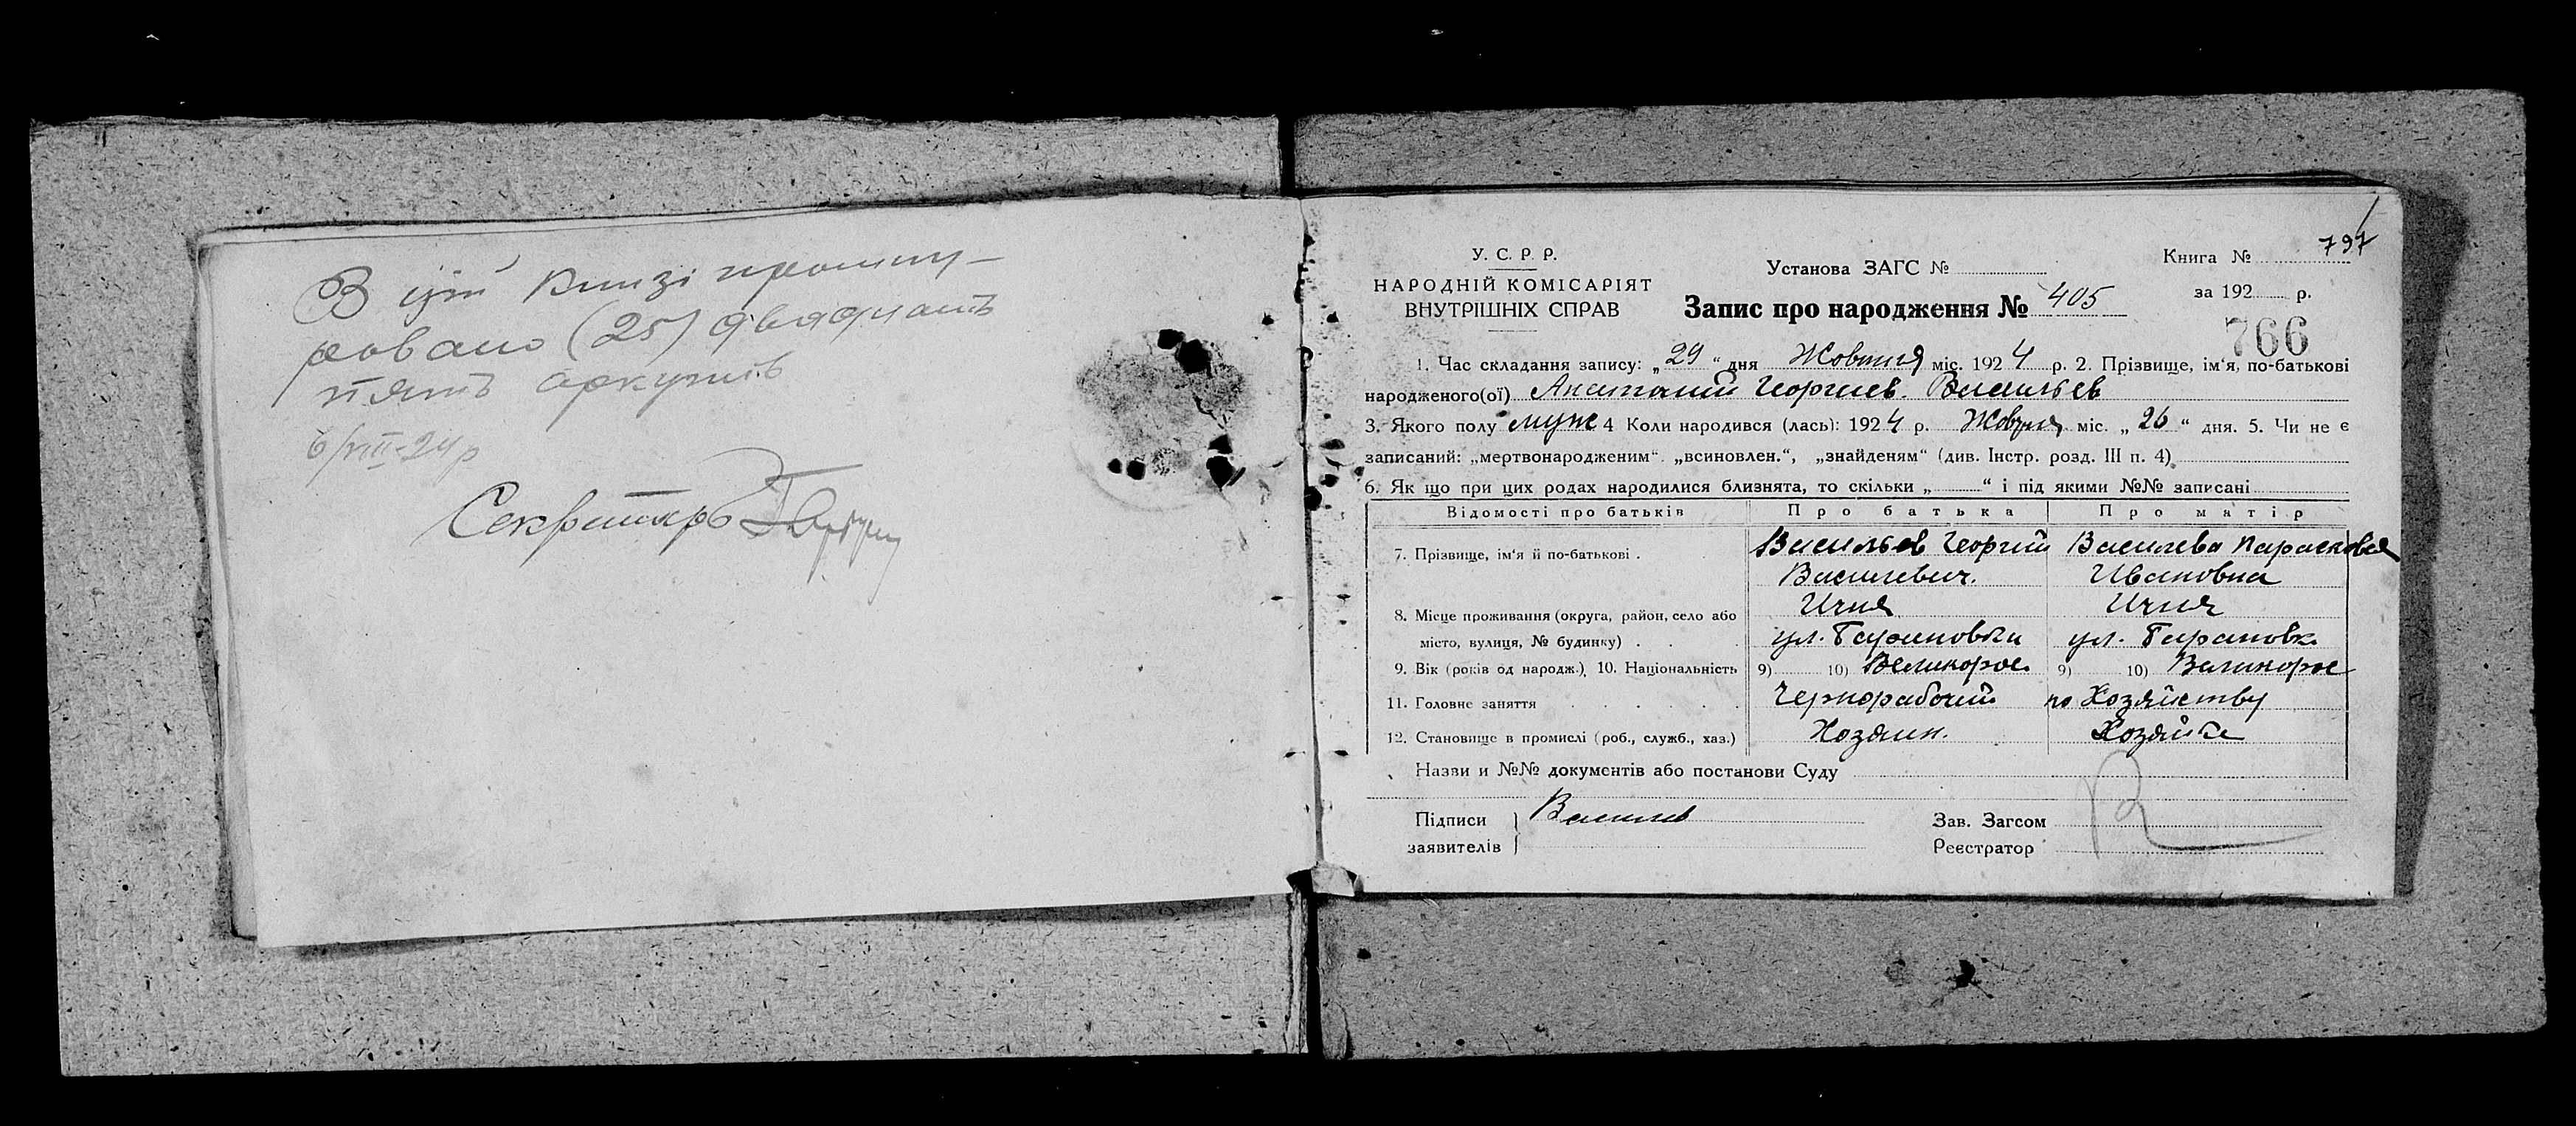 В цій книзі прошну-
ровано (25) двадцать
пять аркушів
6/VIII-24 р
Секретарь
797
У. С. Р. Р.
НАРОДНІЙ КОМІСАРІЯТ
ВНУТРІШНІХ СПРАВ
Установа ЗАГС №
Запис про народження № 405
Книга №
за 192 р.
766
1. Час складання запису: „29“ дня Жовтня міс. 1924 р. 2. Прізвище, ім‘я, по-батькові
народженого(ої) Анатолий Георгиев. Васильев
3. Якого полу муж 4 Коли народився (лась): 1924 р. Жовтня міс. „26“ дня. 5. Чи не є
записаний: „мертвонародженим“. „всиновлен.“, „знайденям“ (див. Інстр. розд. III п. 4)
6. Як що при цих родах народилися близнята, то скільки „ “ і під якими №№ записані
Відомості про батьків Про батька Про матір
7. Прізвище, ім‘я й по-батькові . Васильев Георгий Василева Парасковея
Василевич. Ивановна
8. Місце проживання (округа, район, село або Ичня Ичня
місто, вулиця, № будинку) . . . ул. Тарановка ул. Тарановк
9. Вік (років од народж.), 10. Національність 9) 10) Великорос. 9) 10) Великорос
11. Головне заняття . . . . . . Чернорабочий по Хозяйству
12. Становище в промислі (роб., служб., хаз.) Хозяин. Хозяйка
Назви и №№ документів або постанови Суду
Підписи Василев
заявителів
Зав. Загсом
Реєстратор